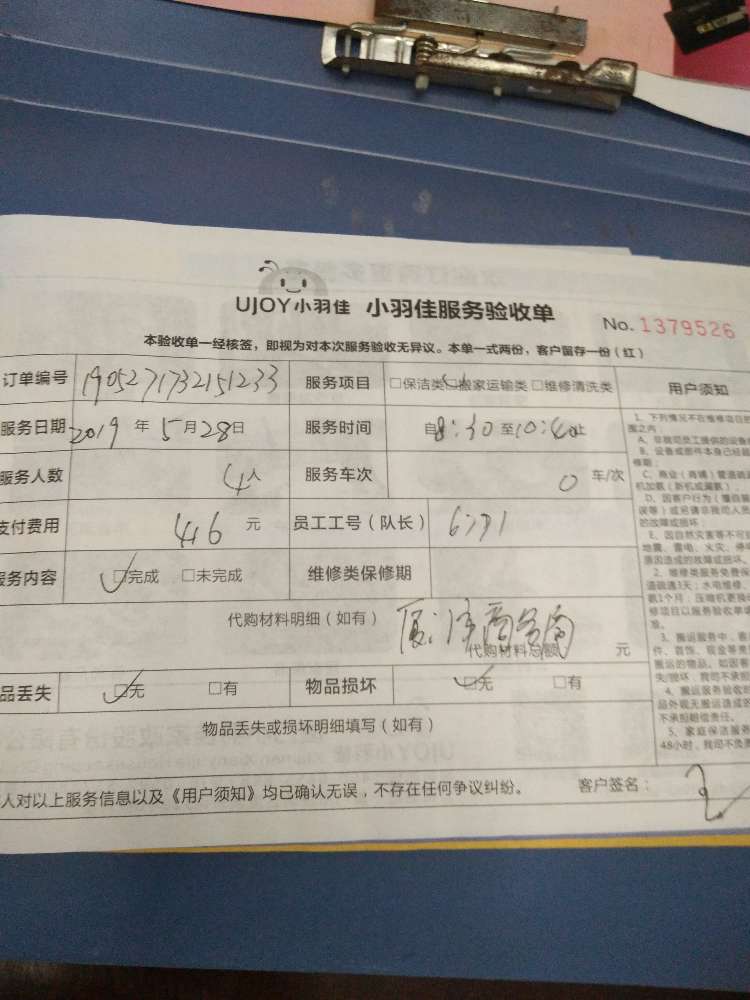 UJOY小羽佳 小羽佳服务验收单 No. 1379526
本验收单一经核签，即视为对本次服务验收无异议。本单一式两份，客户留存一份（红）
订单编号 1905271732151233 服务项目 □保洁类 □搬家运输类 □维修清洗类 用户须知
服务日期 2019 年 5 月 28 日 服务时间 自 8:30 至 10:40 止
服务人数 4 人 服务车次 0 车/次
支付费用 446 元 员工工号（队长）
服务内容 ☑完成 □未完成 维修类保修期
代购材料明细（如有）
代购材料总额 元
品丢失 ☑无 □有 物品损坏 ☑无 □有
物品丢失或损坏明细填写（如有）
人对以上服务信息以及《用户须知》均已确认无误，不存在任何争议纠纷。 客户签名：
1、下列情况不在维修项目的
围之内：
A、非我司员工提供的设备
B、设备或部件本身已经超
修期；
C、商业（商铺）管道疏
机加氨（新机或漏氨）
D、因客户行为（擅自
误等）或另请非我司人员
的故障或损坏；
E、因自然灾害等不可
地震、雷电、火灾、停
原因造成的故障或损坏。
2、维修类服务免费保
道疏通3天；水电维修、
氨1个月；压缩机更换
修项目以服务验收单
准。
3、搬运服务中，
件、首饰、现金等贵
搬运的物品，如因
失/损坏，我司不承担
4、搬运服务验收
品外观无搬运造成的
不承担赔偿责任。
5、家庭保洁服务
48小时，我司不负责